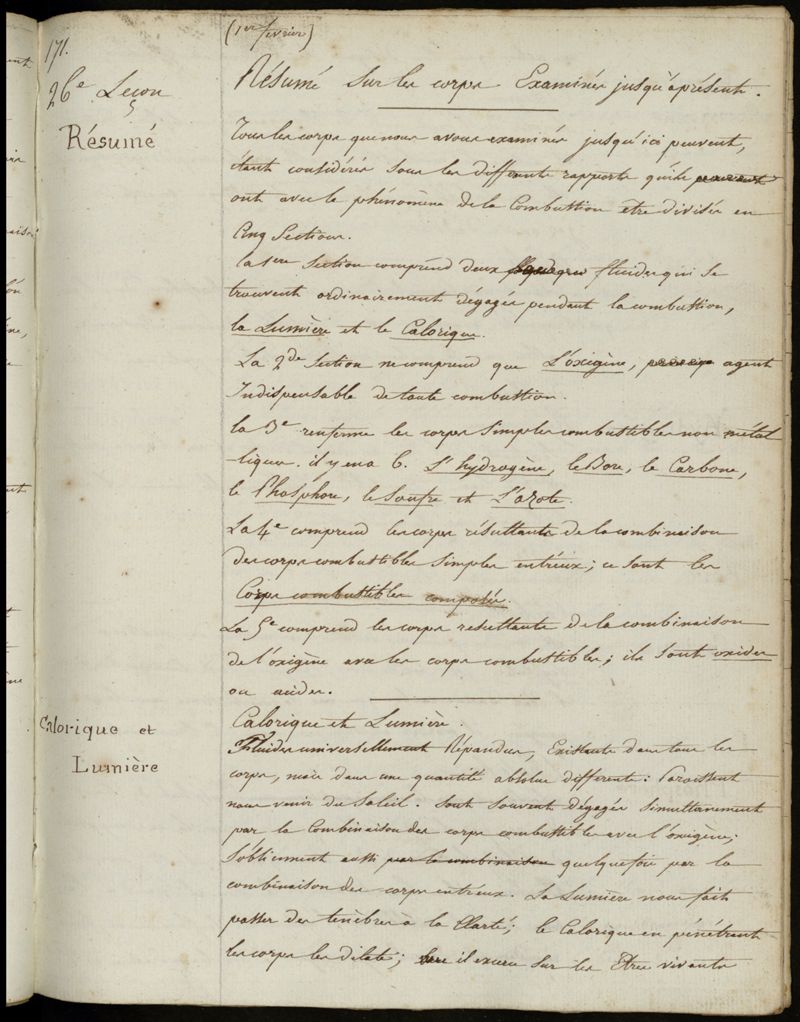 171.
(1er fevrier)
26e Leçon
Résumé
Résumé sur les corps Examinés jusqu'àprésent.
Tous les corps que nous avons examinés jusqu'ici peuvent,
étant considérés sous les differents rapports qu'ils peuvent
ont avec le phénomène de la Combustion etre divisés en
Cinq Sections.
la 1ere Section comprend deux fluides qui se
trouvent ordinairement dégagés pendant la combustion,
la Lumière et le Calorique.
La 2de Section ne comprend que L'oxigène, agent
Indispensable de toute combustion.
la 3e renferme les corps simples combustibles non métal
-liques. il y en a 6. L'hydrogène, le Bore, le Carbone,
le Phosphore, le Soufre et L'azote.
La 4e comprend les corps résultants de la combinaison
des corps combustibles simples entr'eux; ce sont les
Corps combustibles composés.
La 5e comprend les corps resultants de la combinaison
de l'oxigène avec les corps combustibles; ils sont oxides
ou acides.
Calorique et
Lumière
Calorique et Lumière.
Fluides universellement Répandus, Existants dans tous les
corps, mais dans une quantité absolue differente: Paroissent
nous venir du Soleil. Sont souvent dégagés simultanement
par la Combinaison des corps combustibles avec l'oxigène;
S'obtiennent aussi par la combinaison quelquefois par la
combinaison des corps entr'eux. La Lumière nous fait
passer des tenèbres à la Clarté; le Calorique en pénétrant
les corps les dilate; il exerce sur les Etres vivants